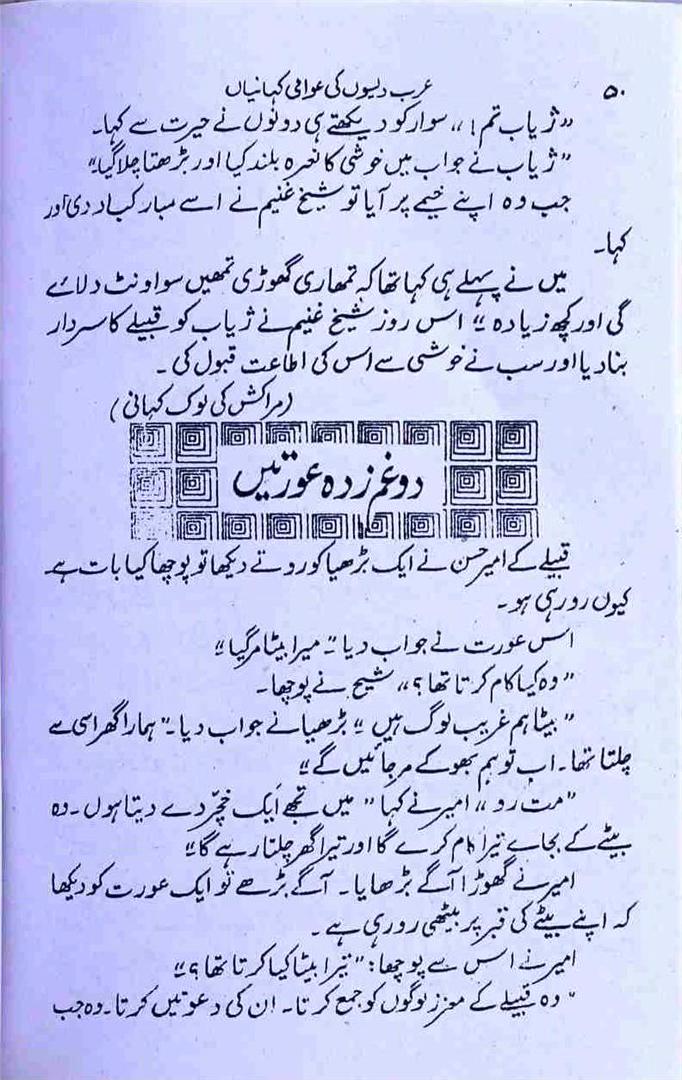 ۵۰ عرب دیسوں کی عوامی کہانیاں
”ژیاب تم!“ سوار کو دیکھتے ہی دونوں نے حیرت سے کہا۔
”ژیاب نے جواب میں خوشی کا نعرہ بلند کیا اور بڑھتا چلا گیا۔“
جب وہ اپنے خیمے پر آیا تو شیخ غنیم نے اسے مبارکباد دی اور
کہا۔
میں نے پہلے ہی کہا تھا کہ تمھاری گھوڑی تمھیں سو اونٹ دلائے
گی اور کچھ زیادہ۔“ اس روز شیخ غنیم نے ژیاب کو قبیلے کا سردار
بنا دیا اور سب نے خوشی سے اس کی اطاعت قبول کی۔
(مراکش کی لوک کہانی)
دو غم زدہ عورتیں
قبیلے کے امیر حسن نے ایک بڑھیا کو روتے دیکھا تو پوچھا کیا بات ہے
کیوں رو رہی ہو۔
اس عورت نے جواب دیا۔ ”میرا بیٹا مر گیا۔“
”وہ کیا کام کرتا تھا؟“ شیخ نے پوچھا۔
”بیٹا ہم غریب لوگ ہیں۔“ بڑھیا نے جواب دیا۔ ”ہمارا گھر اسی سے
چلتا تھا۔ اب تو ہم بھوکے مر جائیں گے۔“
”مت رو“ امیر نے کہا ”میں تجھے ایک خچّر دے دیتا ہوں۔ وہ
بیٹے کے بجاے تیرا کام کرے گا اور تیرا گھر چلتا رہے گا۔“
امیر نے گھوڑا آگے بڑھایا۔ آگے بڑھے تو ایک عورت کو دیکھا
کہ اپنے بیٹے کی قبر پر بیٹھی رو رہی ہے۔
امیر نے اس سے پوچھا: ”تیرا بیٹا کیا کرتا تھا؟“
”وہ قبیلے کے معزز لوگوں کو جمع کرتا۔ ان کی دعوتیں کرتا۔ وہ جب